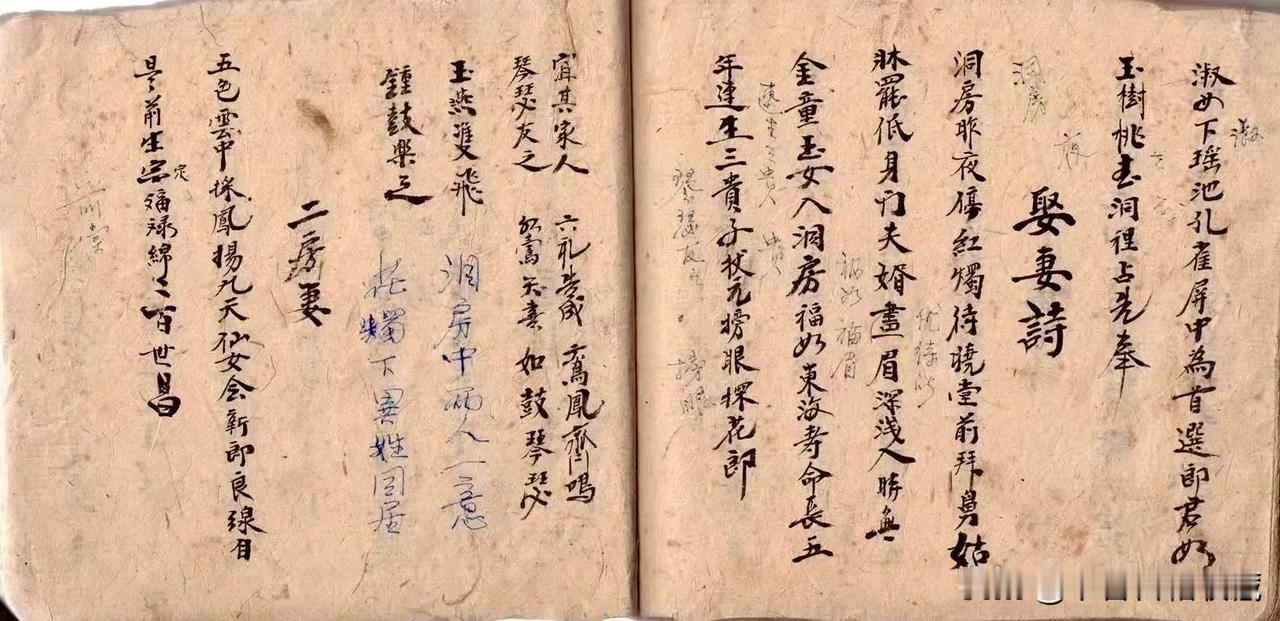 淑女下瑶池孔雀屏中為首選郎君如
淑
玉樹桃玄洞裡占先奉
洞房
夜
娶妻詩
洞房昨夜停紅燭待曉堂前拜舅姑
牀罷低身门夫婿畫眉深浅入時無
金童玉女入洞房福如東海寿命長五
福眉
年連生三貴子狀元榜眼探花郎
連生三貴人 貴人
琴瑟友之 榜眼
宜其家人 六礼告成 鸞鳳齊鳴
琴瑟友之 紅鸞天喜 如鼓琴瑟
玉燕雙飛 洞房中兩人一意
鍾鼓樂之 花燭下異姓同居
二房妻
五色雲中採鳳揚九天仙女会新郎良緣自
是前生定福禄綿々百世昌
定